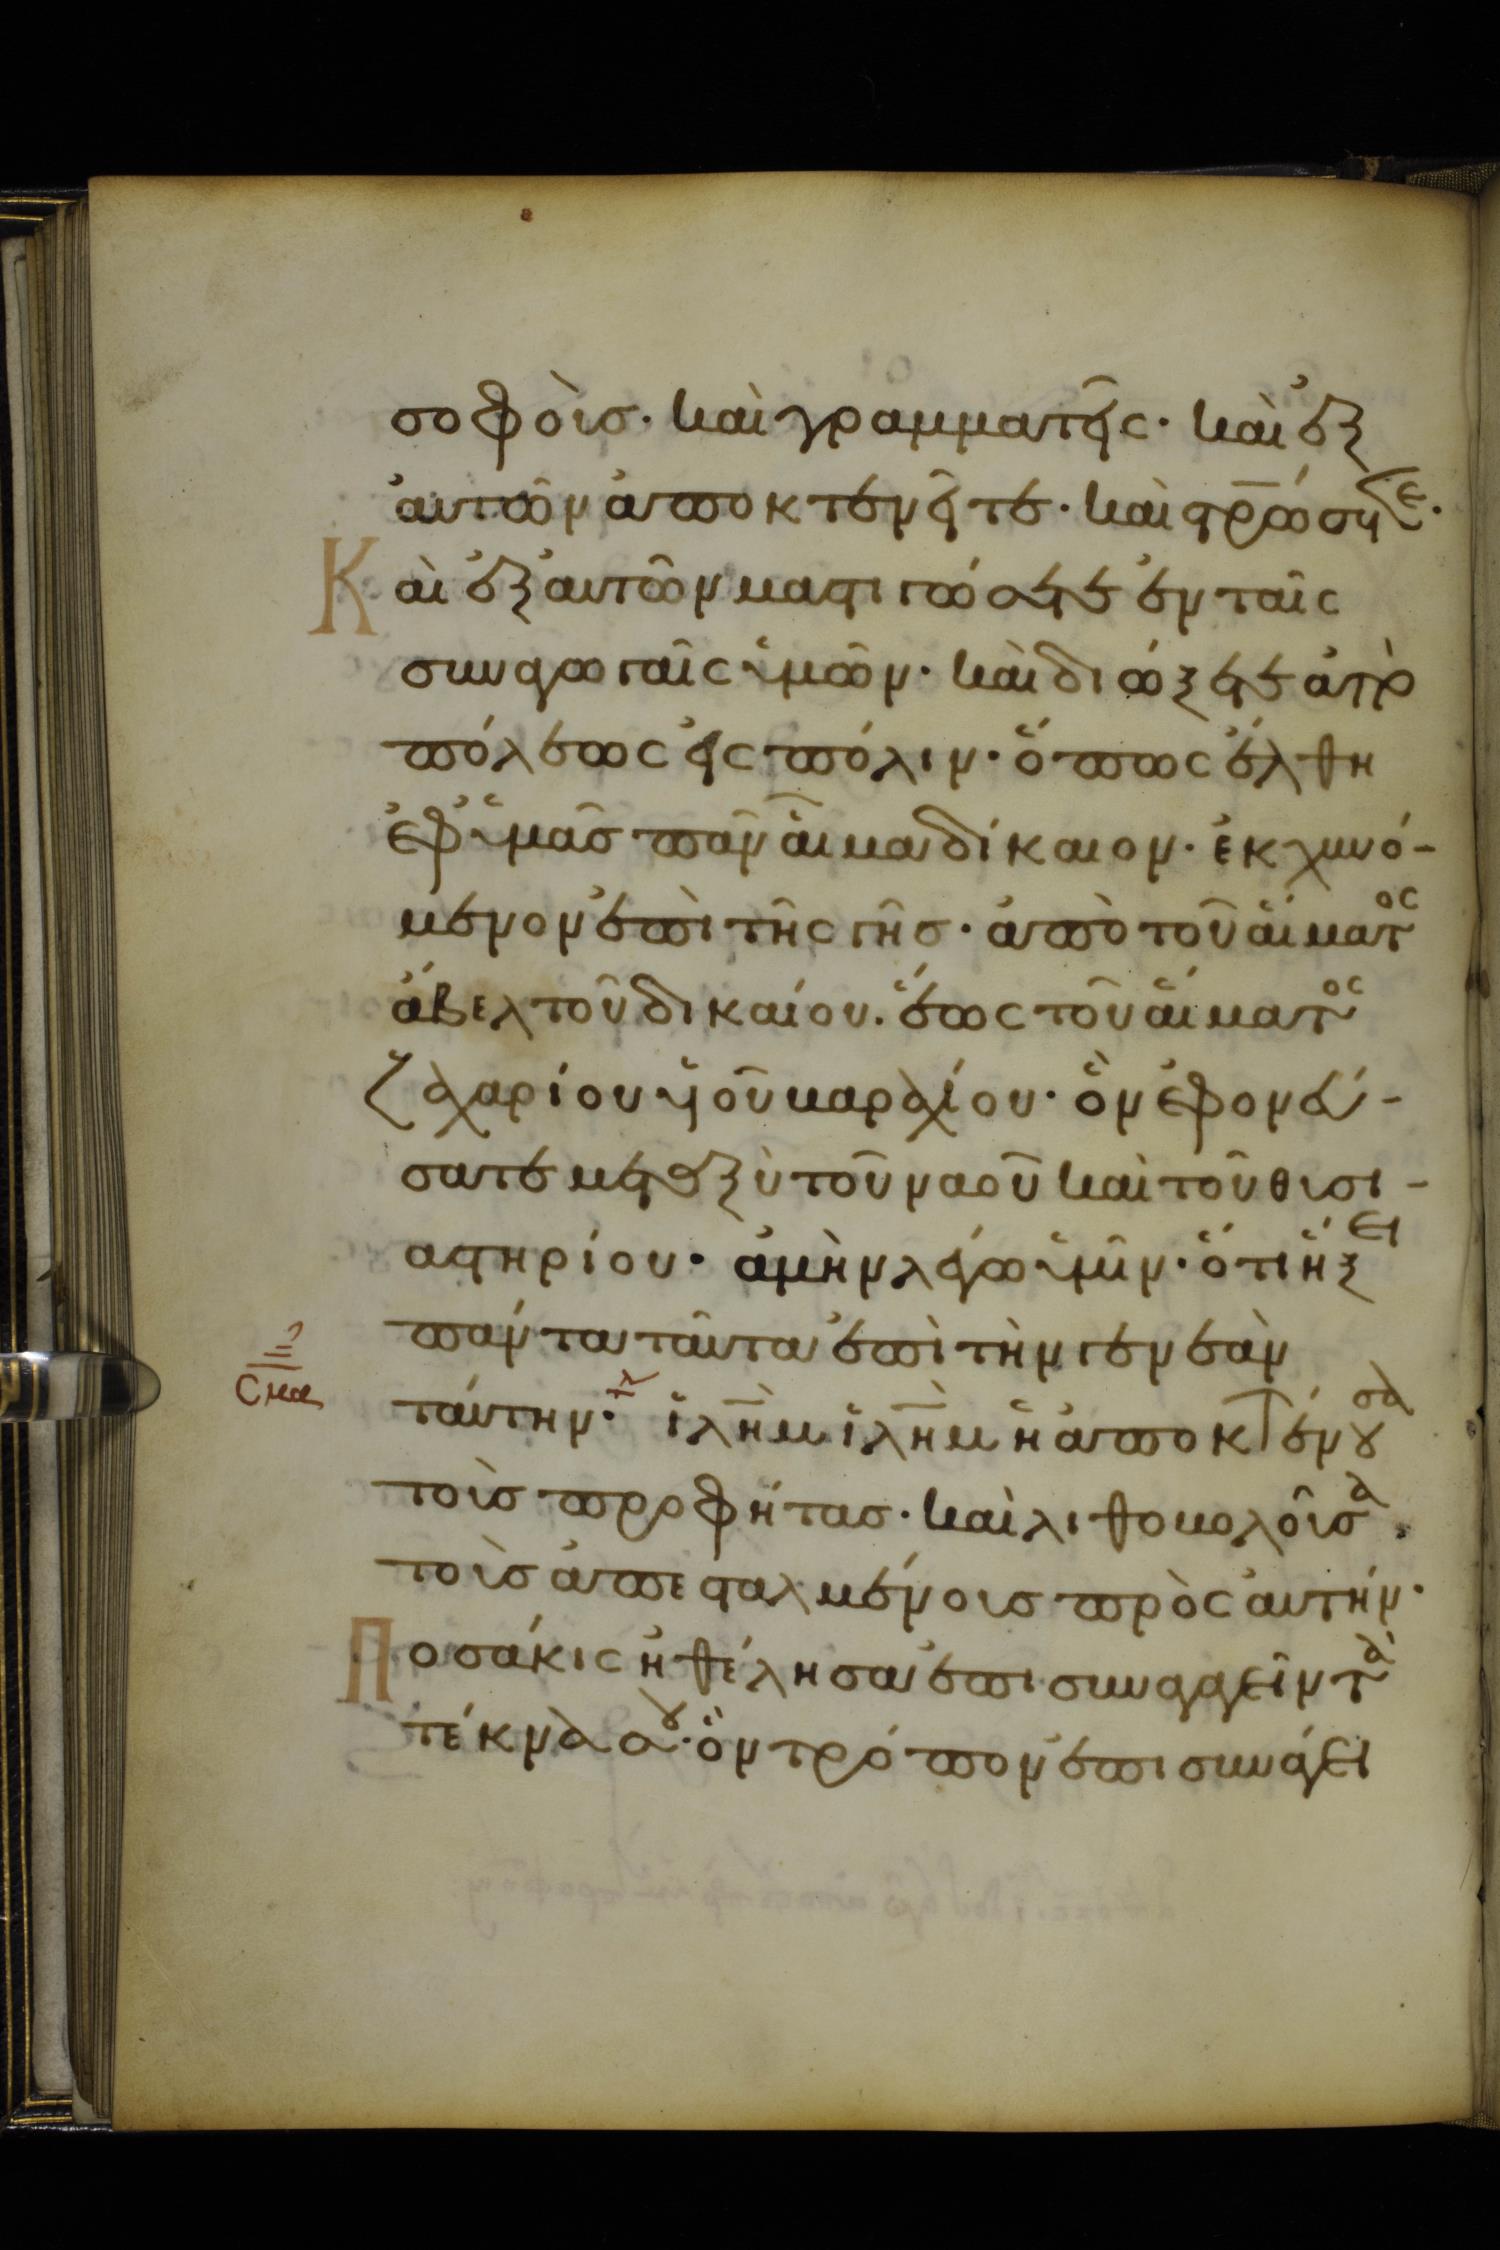 σοφοὺσ· καὶ γραμματεῖς· καὶ ἐξ
ἀυτῶν ἀποκτενεῖτε· καὶ στ̅ρώσητε·
Καὶ ἐξ ἀυτῶν μαστιγώσετε ἐν ταῖς
συναγωγαῖς ὑμῶν· καὶ διώξετε ἀπὸ
πόλεως εἰς πόλιν· ὅπως ἔλθη
ἐφ' ὑμᾶσ πᾶν αἷμα δίκαιον· ἐκχυνό-
μενον ἐπὶ τῆς γῆσ· ἀπὸ τοῦ αἵματος
ἄβελ τοῦ δικαίου. ἕως τοῦ αἵματος
ζαχαρίου ὑιοῦ βαραχίου· ὃν ἐφονεύ-
σατε μεταξὺ τοῦ ναοῦ καὶ τοῦ θυσι-
αστηρίου· ἀμὴν λέγω ὑμῖν· ὅτι ἥξει
πάντα ταῦτα ἐπὶ τὴν γενεὰν
ταύτην· ἰλ̅ημ ἰλ̅ημ ἡ ἀποκτένουσα
τοὺσ προφήτασ· καὶ λιθοβολοῦσα
τοὺσ ἀπεσταλμένουσ πρὸς ἀυτήν·
Ποσάκις ἠθέλησα ἐπισυναγαγεῖν τὰ
τέκνα σου· ὃν τρόπον ἐπισυνάγει
σμα